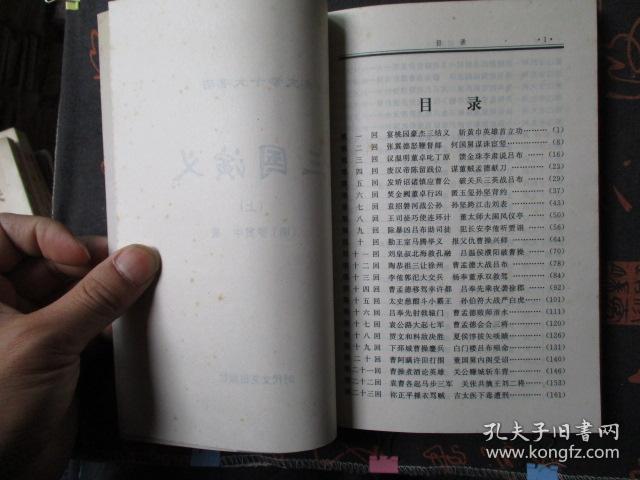 三国演义
（上）
时代文艺出版社
目 录
·1·
目 录
第 一 回 宴桃园豪杰三结义 斩黄巾英雄首立功………(1)
第 二 回 张翼德怒鞭督邮 何国舅谋诛宦竖………(8)
第 三 回 议温明董卓叱丁原 馈金珠李肃说吕布………(16)
第 四 回 废汉帝陈留践位 谋董贼孟德献刀………(23)
第 五 回 发矫诏诸镇应曹公 破关兵三英战吕布………(29)
第 六 回 焚金阙董卓行凶 匿玉玺孙坚背约………(37)
第 七 回 袁绍磐河战公孙 孙坚跨江击刘表………(43)
第 八 回 王司徒巧使连环计 董太师大闹凤仪亭………(50)
第 九 回 除暴凶吕布助司徒 犯长安李傕听贾诩………(56)
第 十 回 勤王室马腾举义 报父仇曹操兴师………(64)
第 十一 回 刘皇叔北海救孔融 吕温侯濮阳破曹操………(70)
第 十二 回 陶恭祖三让徐州 曹孟德大战吕布………(78)
第 十三 回 李傕郭汜大交兵 杨奉董承双救驾………(84)
第 十四 回 曹孟德移驾幸许都 吕奉先乘夜袭徐郡………(92)
第 十五 回 太史慈酣斗小霸王 孙伯符大战严白虎………(101)
第 十六 回 吕奉先射戟辕门 曹孟德败师淯水………(110)
第 十七 回 袁公路大起七军 曹孟德会合三将………(120)
第 十八 回 贾文和料敌决胜 夏侯惇拔矢啖睛………(127)
第 十九 回 下邳城曹操鏖兵 白门楼吕布殒命………(132)
第 二十 回 曹阿瞒许田打围 董国舅内阁受诏………(142)
第二十一回 曹操煮酒论英雄 关公赚城斩车胄………(148)
第二十二回 袁曹各起马步三军 关张共擒王刘二将………(153)
第二十三回 祢正平裸衣骂贼 吉太医下毒遭刑………(161)
孔夫子旧书网
www.kongfz.com